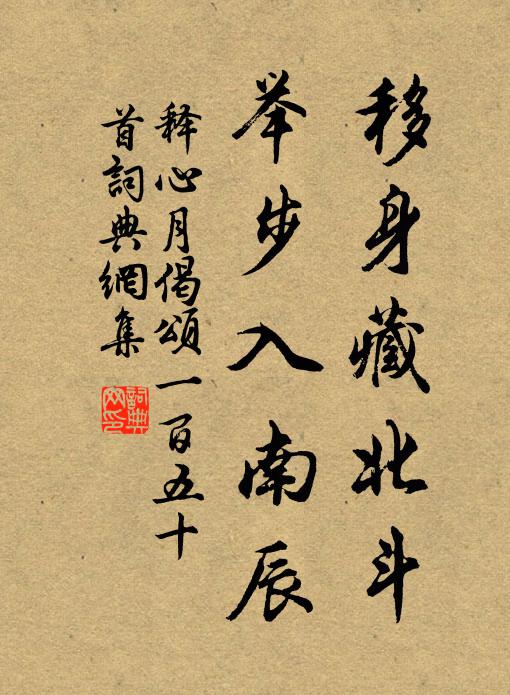 移身藏北斗
举步入南辰
释心月偈頌一百五十
首詞典網集
詞典网印